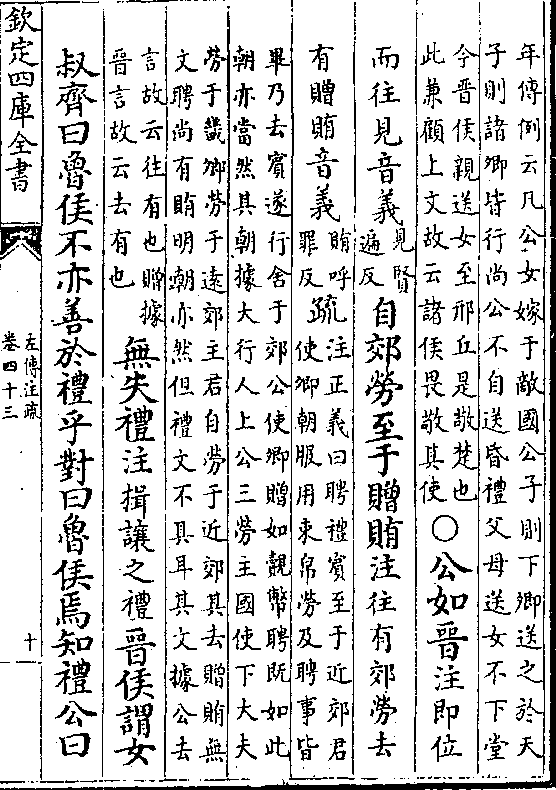 年傳例云凡公女嫁于敵國公子則下卿送之於天
子則諸卿皆行尚公不自送昏禮父母送女不下堂
今晉侯親送女至邢丘是敬楚也
此兼顧上文故云諸侯畏敬其使
○公如晉注即位
而往見音義見賢遍反自郊勞至于贈賄注往有郊勞去
有贈賄音義賄呼罪反疏
注正義曰聘禮賓至于近郊君
使卿朝服用束帛勞及聘事皆
畢乃去賓遂行舍于郊公使卿贈如覿幣聘既如此
朝亦當然其朝據大行人上公三勞主國使下大夫
勞于畿卿勞于遠郊主君自勞于近郊其去贈賄無
文聘尚有賄明朝亦然但禮文不具耳其文據公去
言故云往有也贈據
晉言故云去有也
無失禮注揖讓之禮晉侯謂女
叔齊曰魯侯不亦善於禮乎對曰魯侯焉知禮公曰
欽定四庫全書
左傳注疏
卷四十三
十